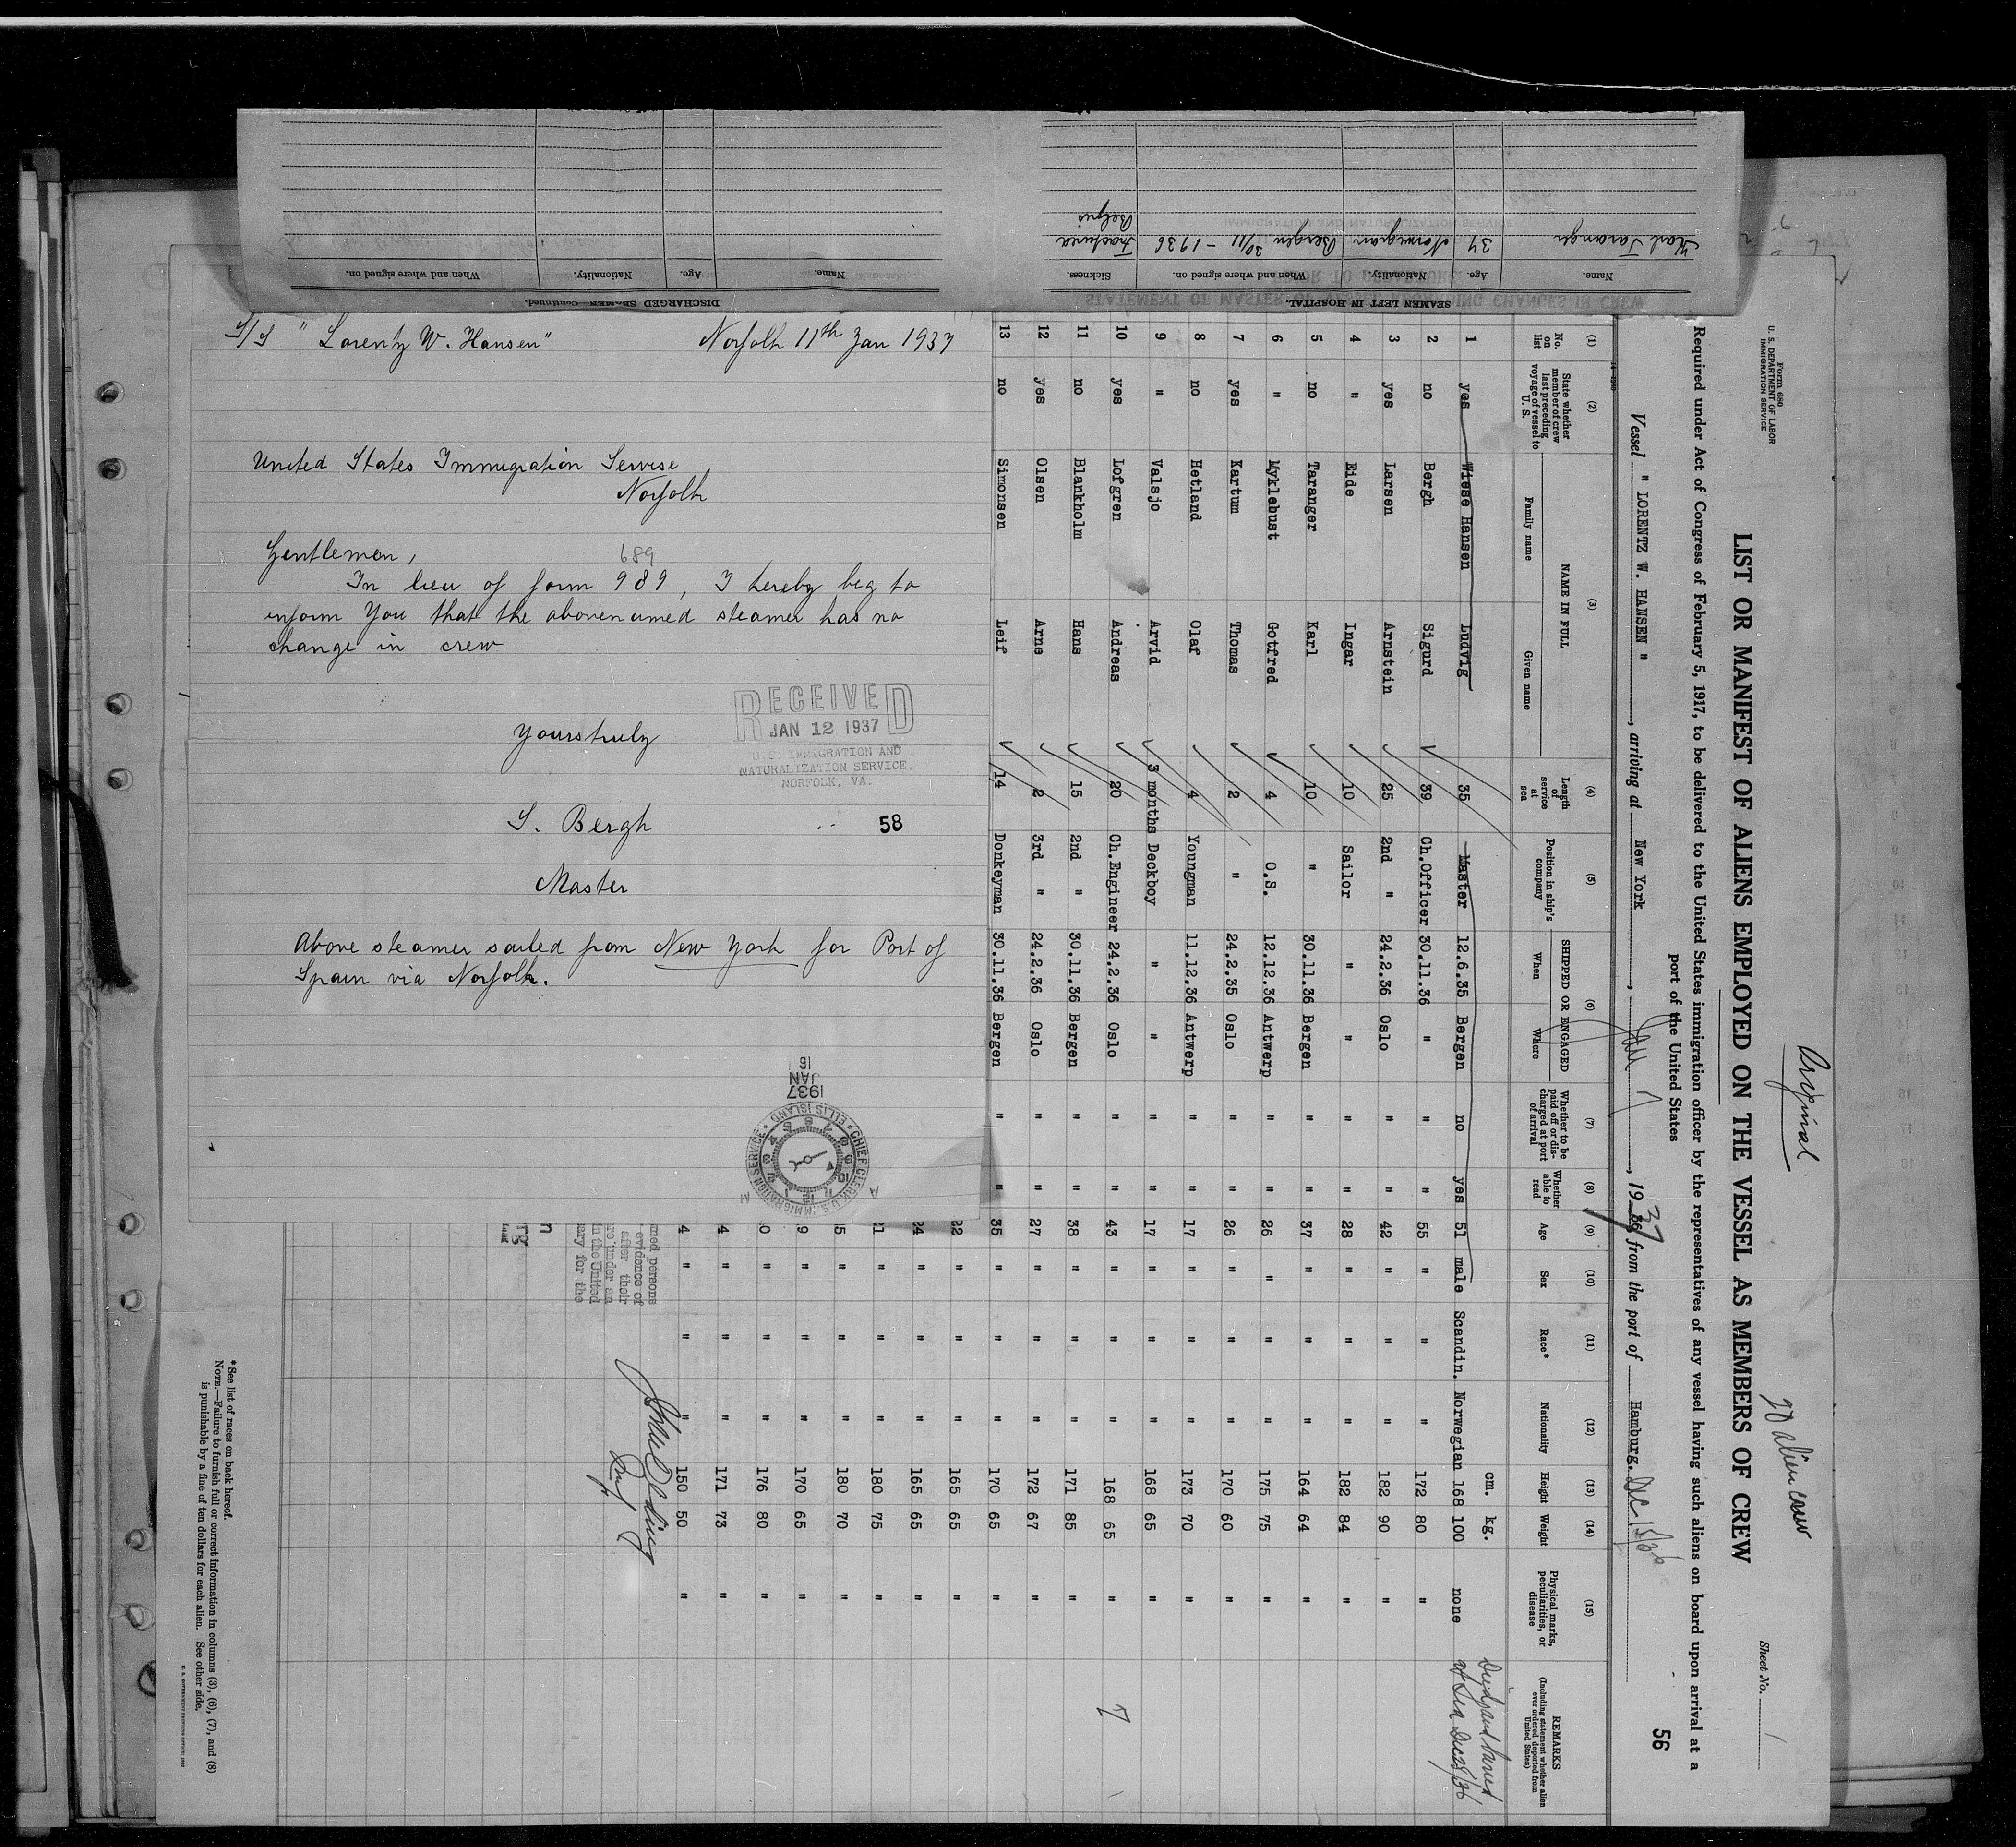 SEAMEN LEFT IN HOSPITAL.
Name. Age. Nationality. When and where signed on. Sickness.
Karl Taranger 37 Norwegian Bergen 30/11 - 1936 Fractured Pelvis
DISCHARGED SEAMEN—Continued.
Name. Age. Nationality. When and where signed on.
S/S " Lorentz W. Hansen" Norfolk 11th Jan 1937
United States Immigration Servise
Norfolk
Gentlemen,
689
In lieu of form 989, I hereby beg to
inform You that the abovenamed steamer has no
change in crew
Yours truly
RECEIVED
JAN 12 1937
U.S. IMMIGRATION AND
NATURALIZATION SERVICE,
NORFOLK, VA.
S. Bergh
58
Master
Above steamer sailed from New York for Port of
Spain via Norfolk.
1937
JAN
16
CHIEF CLERK U.S. IMMIGRATION SERVICE ELLIS ISLAND
Original
20 alien crew
Form 680
U. S. DEPARTMENT OF LABOR
IMMIGRATION SERVICE
Sheet No. 1
LIST OR MANIFEST OF ALIENS EMPLOYED ON THE VESSEL AS MEMBERS OF CREW
Required under Act of Congress of February 5, 1917, to be delivered to the United States immigration officer by the representatives of any vessel having such aliens on board upon arrival at a
port of the United States
56
Vessel " LORENTZ W. HANSEN ", arriving at New York, Jan 7, 1937 from the port of Hamburg. Dec 15/36
(1) (2) (3) (4) (5) (6) (7) (8) (9) (10) (11) (12) (13) (14) (15)
No. on list
State whether member of crew last preceding voyage of vessel to U. S.
NAME IN FULL
Family name Given name
Length of service at sea
Position in ship's company
SHIPPED OR ENGAGED
When Where
Whether to be paid off or discharged at port of arrival
Whether able to read
Age
Sex
Race*
Nationality
Height
Weight
Physical marks, peculiarities, or disease
REMARKS
(Including statement whether alien ever ordered deported from United States)
cm. kg.
1 yes Wiese Hansen Ludvig 35 Master 12.6.35 Bergen no yes 51 male Scandin. Norwegian 168 100 none Died and buried at Sea Dec 25/36
2 no Bergh Sigurd 39 Ch.Officer 30.11.36 " " " 55 " " " 172 80 "
3 yes Larsen Arnstein 25 2nd " 24.2.36 Oslo " " 42 " " " 182 90 "
4 " Eide Ingar 10 Sailor " " " " 28 " " " 182 84 "
5 no Taranger Karl 10 " 30.11.36 Bergen " " 37 " " " 164 64 "
6 " Myklebust Gotfred 4 O.S. 12.12.36 Antwerp " " 26 " " " 175 75 "
7 yes Kartum Thomas 2 " 24.2.35 Oslo " " 26 " " " 170 60 "
8 no Hetland Olaf 4 Youngman 11.12.36 Antwerp " " 17 " " " 173 70 "
9 " Valsjo Arvid 3 months Deckboy " " " " 17 " " " 168 65 "
10 yes Lofgren Andreas 20 Ch.Engineer 24.2.36 Oslo " " 43 " " " 168 65 " 7
11 no Blankholm Hans 15 2nd " 30.11.36 Bergen " " 38 " " " 171 85 "
12 yes Olsen Arne 2 3rd " 24.2.36 Oslo " " 27 " " " 172 67 "
13 no Simonsen Leif 14 Donkeyman 30.11.36 Bergen " " 35 " " " 170 65 "
22 " " " 165 65 "
24 " " " 165 65 "
21 " " " 180 75 "
5 " " " 180 70 "
9 " " " 170 65 "
0 " " " 176 80 "
4 " " " 171 73 "
4 " " " 150 50 "
med persons
evidence of
after their
re under an
in the United
ary for the
*See list of races on back hereof.
NOTE.—Failure to furnish full or correct information in columns (3), (6), (7), and (8)
is punishable by a fine of ten dollars for each alien. See other side.